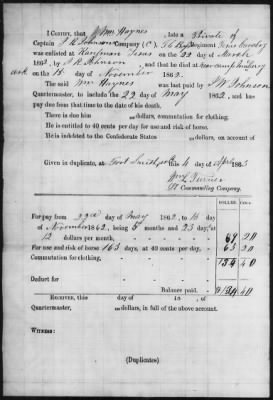 I CERTIFY, that Wm Haynes , late a Private of
Captain J R Johnson Company (C) Regiment Texas Cavalry
was enlisted at Kaufman Texas on the 22 day of March
1862, by J R Johnson , and that he died at near camp
Ark on the 11 day of November 1862.
The said Wm Haynes was last paid by J W Johnson
Quartermaster, to include the 22 day of May 1862, and has
pay due from that time to the date of his death.
There is due him dollars, commutation for clothing.
He is entitled to 40 cents per day for use and risk of horse.
He is indebted to the Confederate States dollars, on account of
Given in duplicate, at Fort Smith Ark this 4 day of April 1863
Wm L Turner
Lt Commanding Company.
DOLLRS. CTS.
For pay from 22nd day of May 1862, to 11 day
of November 1862, being 5 months and 23 day, at
12 dollars per month, 69 20
For use and risk of horse 163 days, at 40 cents per day, 65 20
Commutation for clothing, 134 40
Deduct for
Balance paid. $ 134 40
RECEIVED, this day of 18 , of
Quartermaster, dollars, in full of the above account.
WITNESS:
(Duplicates)